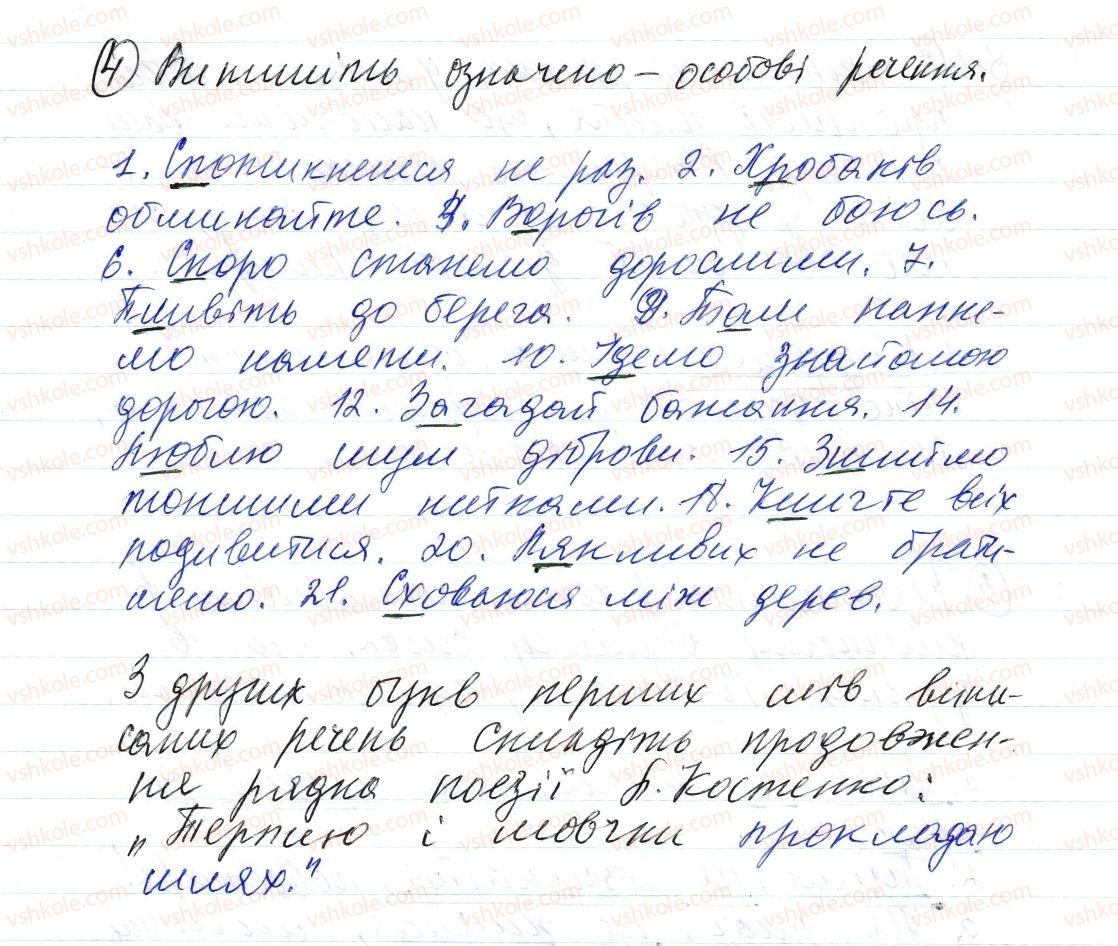 ④ Випишіть означено-особові речення.
1. Спотикнешся не раз. 2. Хробаків
обминайте. 4. Ворогів не боюсь.
6. Скоро станемо дорослими. 7.
Пливіть до берега. 9. Там напне-
мо намети. 10. Ідемо знайомою
дорогою. 12. Загадай бажання. 14.
Люблю шум діброви. 15. Зшиймо
тоншими нитками. 18. Кличте всіх
подивитися. 20. Лякливих не брати-
мемо. 21. Сховаюся між дерев.
З других букв перших слів випи-
саних речень складіть продовжен-
ня рядка поезії Л. Костенко:
"Терплю і мовчки прокладаю
шлях."